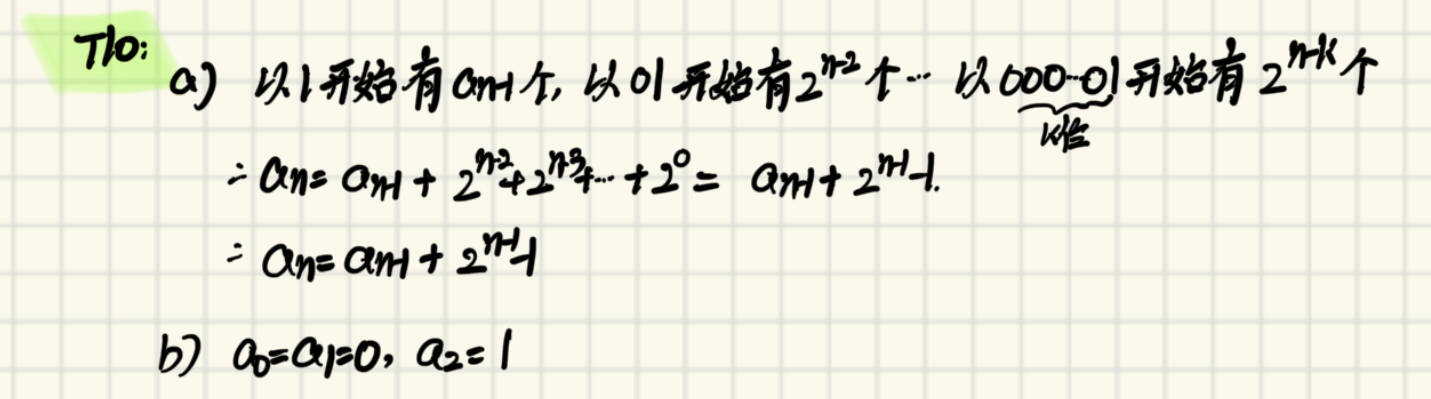 T10:
a) 以1开始有aₙ₋₁个, 以01开始有2ⁿ⁻²个… 以000…01开始有2ⁿ⁻ᵏ个
k位
∴ aₙ = aₙ₋₁ + 2ⁿ⁻² + 2ⁿ⁻³ + … + 2⁰ = aₙ₋₁ + 2ⁿ⁻¹ - 1.
∴ aₙ = aₙ₋₁ + 2ⁿ⁻¹ - 1
b) a₀ = a₁ = 0, a₂ = 1